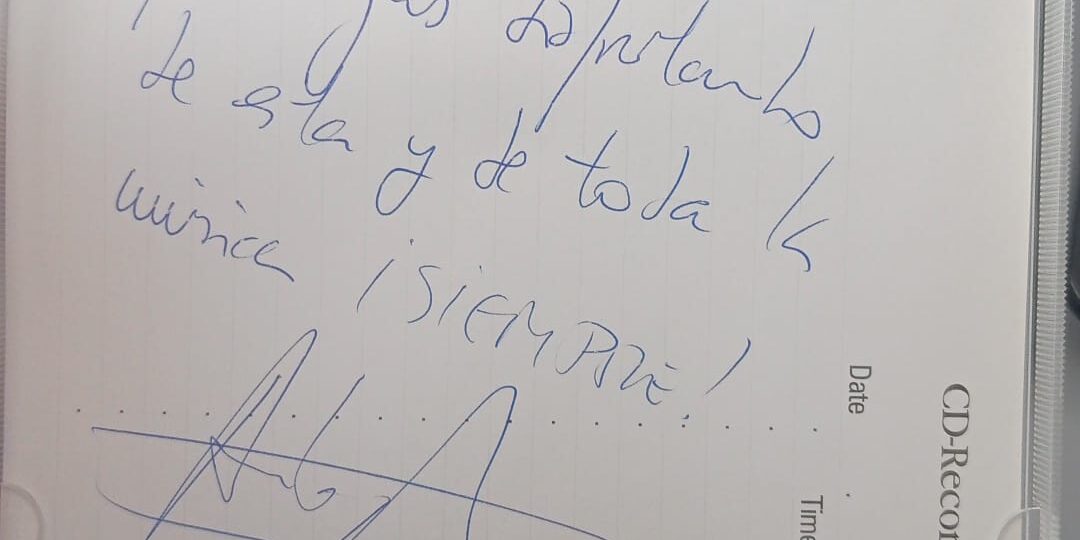 disfrutando
de esta y de toda la
música ¡SIEMPRE!
Date
Time
CD-Recor